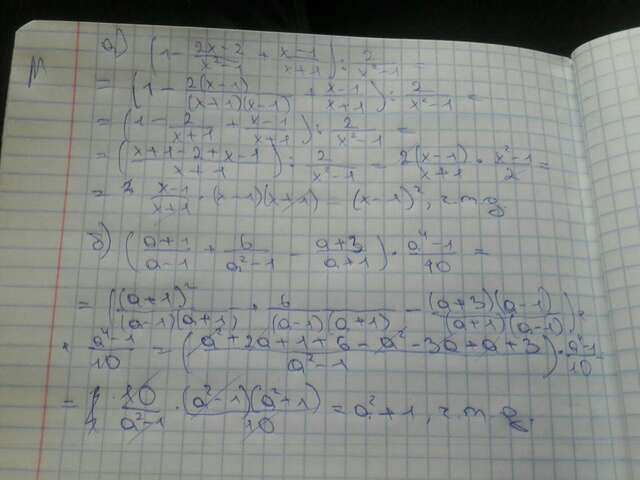 а) (1 - \frac{2x-2}{x²-1} + \frac{x-1}{x+1}) : \frac{2}{x²-1} =
= (1 - \frac{2(x-1)}{(x+1)(x-1)} + \frac{x-1}{x+1}) : \frac{2}{x²-1} =
= (1 - \frac{2}{x+1} + \frac{x-1}{x+1}) : \frac{2}{x²-1} =
= (\frac{x+1-2+x-1}{x+1}) : \frac{2}{x²-1} = \frac{2(x-1)}{x+1} · \frac{x²-1}{2} =
= \frac{x-1}{x+1} · (x-1)(x+1) = (x-1)², ч.т.д.
б) (\frac{a+1}{a-1} + \frac{6}{a²-1} - \frac{a+3}{a+1}) · \frac{a⁴-1}{10} =
= (\frac{(a+1)²}{(a-1)(a+1)} + \frac{6}{(a-1)(a+1)} - \frac{(a+3)(a-1)}{(a+1)(a-1)}) ·
· \frac{a⁴-1}{10} = (\frac{a²+2a+1+6-a²-3a+a+3}{a²-1}) · \frac{a⁴-1}{10} =
= \frac{10}{a²-1} · \frac{(a²-1)(a²+1)}{10} = a²+1, ч.т.д.